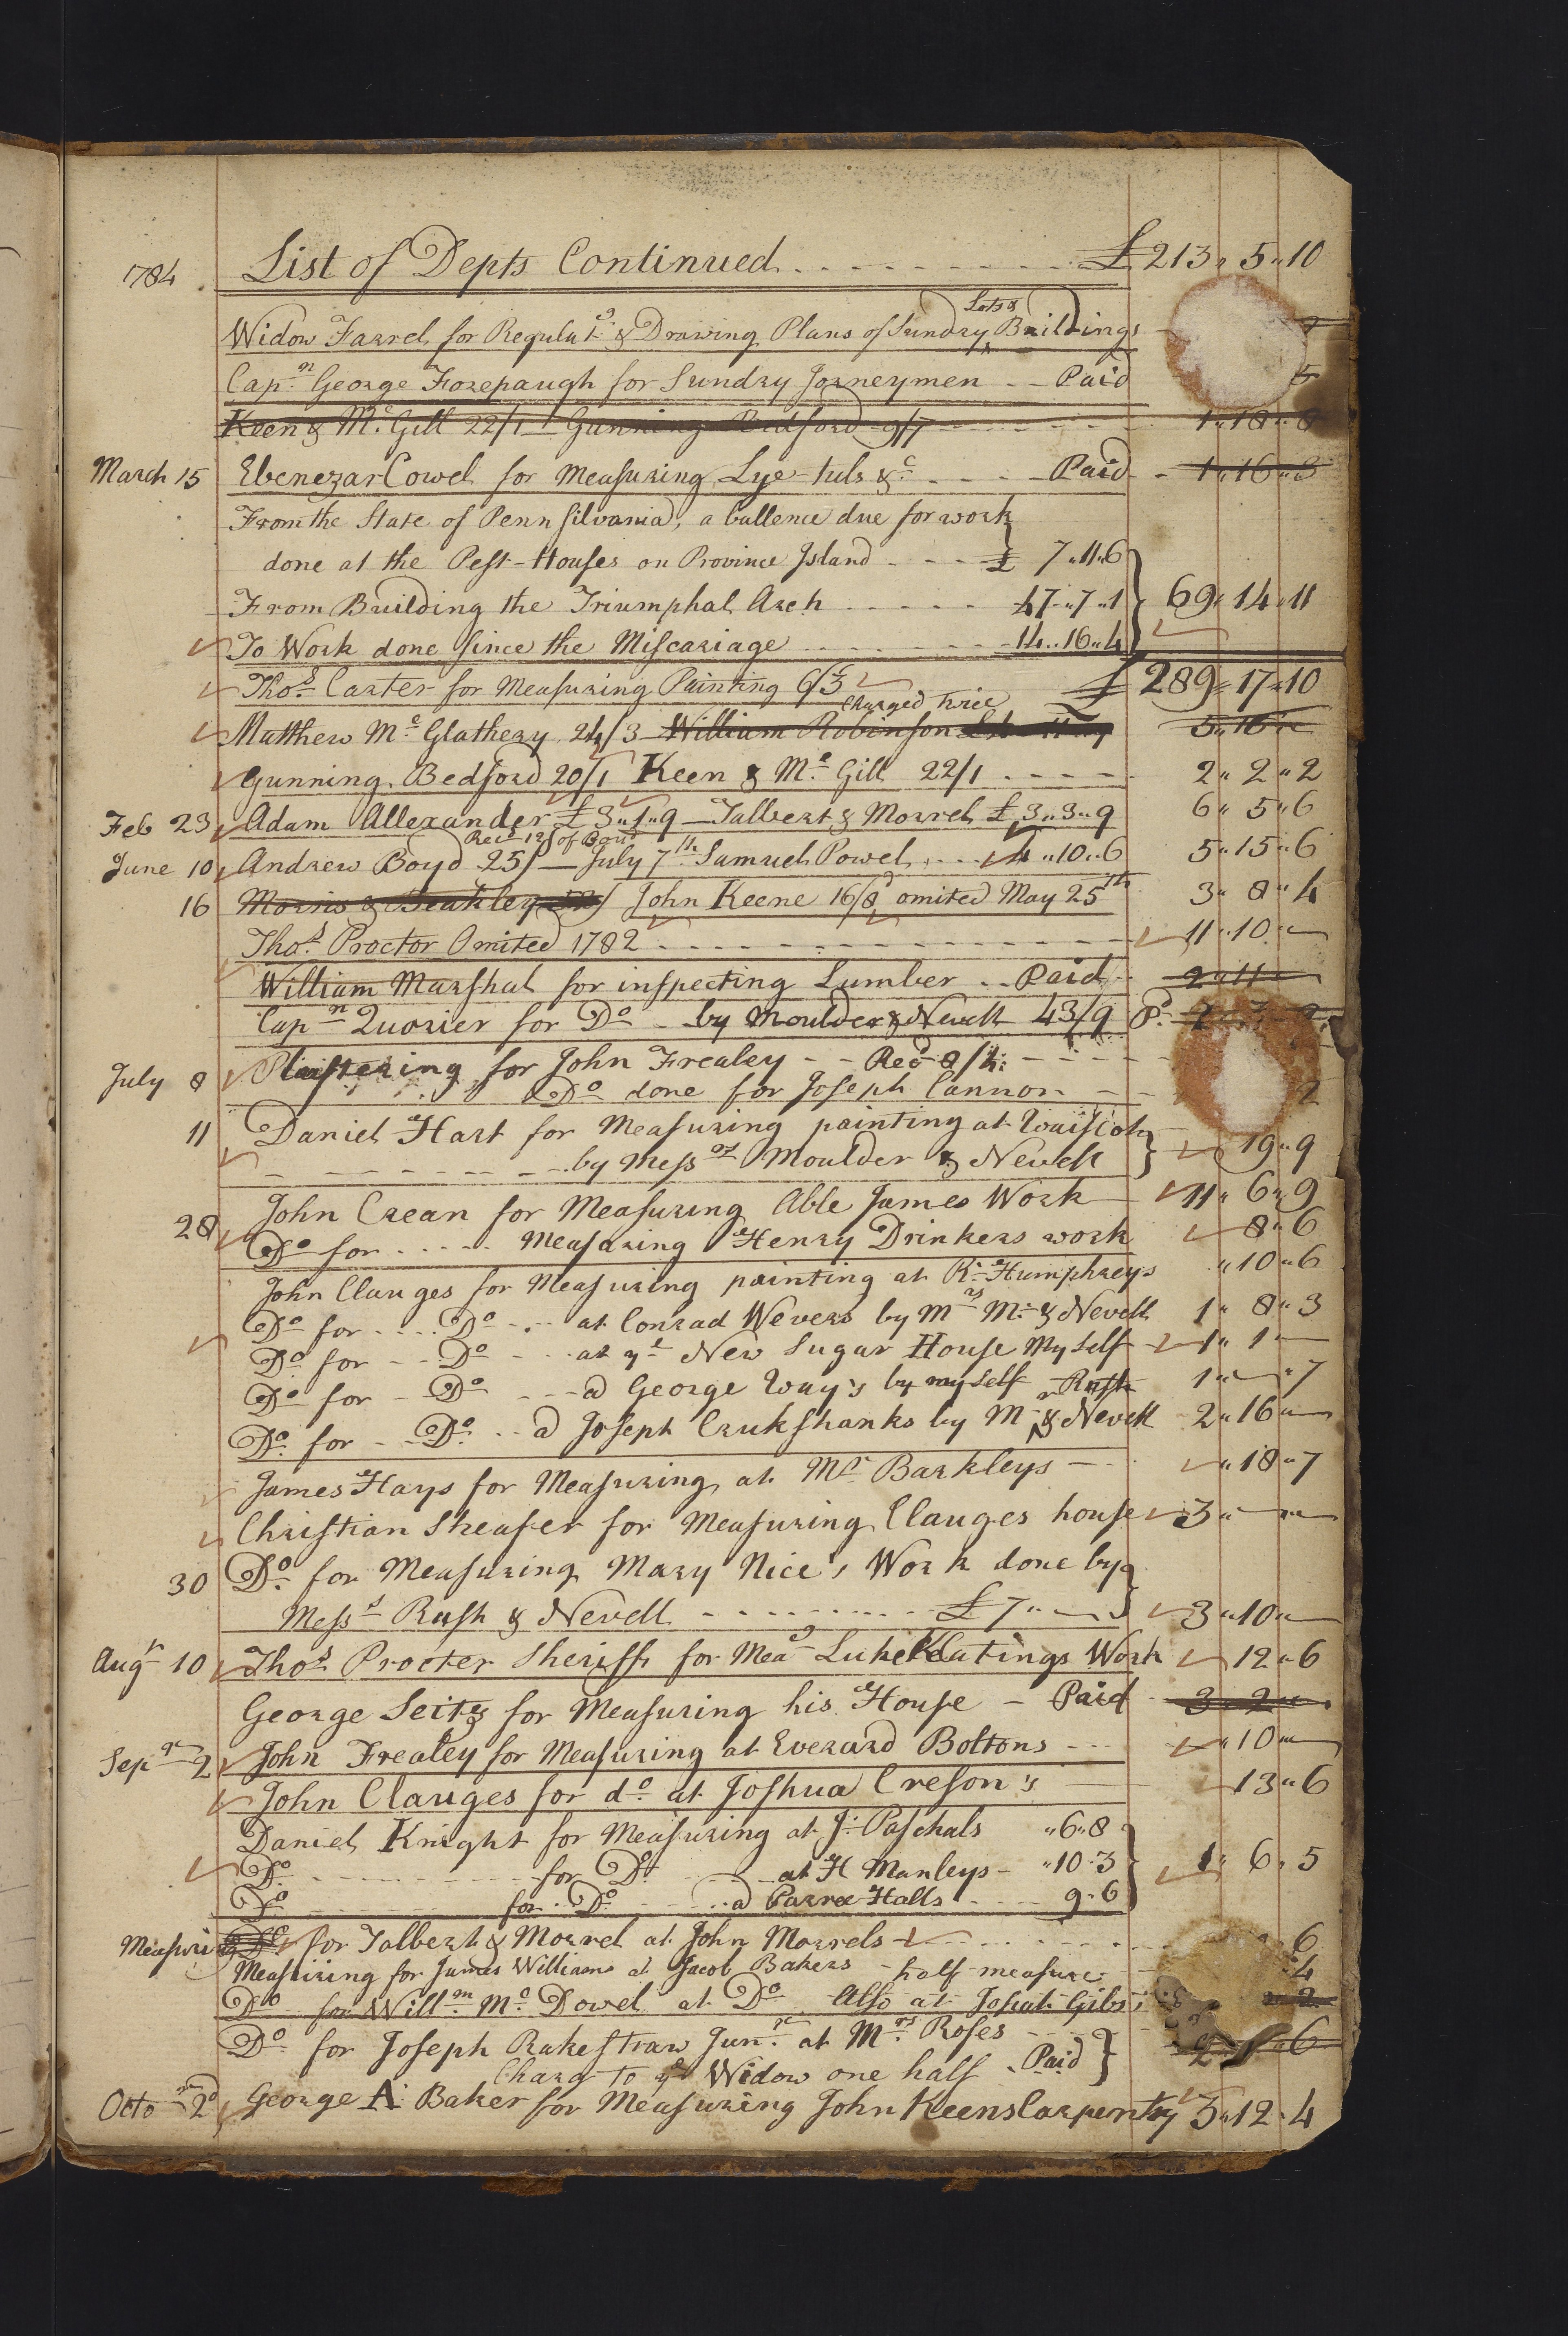 1784 List of Depts Continued £ 213 " 5 " 10
Widow Farrel for Regulatg & Drawing Plans of Sundry Lots & Buildings
Capn George Forepaugh for Sundry Jorneymen -- Paid
Keen & Mc Gill 22/1 - Gunning Bedford 9/7 1 " 18 " 8
March 15 Ebenezar Cowel for Measuring Lye-tubs &c Paid 1 " 16 " 3
From the State of Pennsilvania, a ballence due for work
done at the Pest-Houses on Province Island £ 7 " 11 " 6
From Building the Triumphal Arch 47 " 7 " 1 69 " 14 " 11
To Work done since the Miscariage 14 " 16 " 4
Thos Carter for Measuring Painting 6/3 £ 289 " 17 " 10
Charged twice
Matthew Mc Glathery 24/3 William Robinson 5 " 16 "
Gunning Bedford 20/1 Keen & Mc Gill 22/1 2 " 2 " 2
Feb 23 Adam Allexander £ 3 " 1 " 9 - Talbert & Morrel £ 3 " 3 " 9 6 " 5 " 6
Recd 12/ of Boyd
June 10 Andrew Boyd 25/ - July 7th Samuel Powel 4 " 10 " 6 5 " 15 " 6
16 Morris & Brakley John Keene 16/8 omited May 25th 3 " 8 " 4
Thos Proctor Omited 1782 11 " 10 " -
William Marshal for inspecting Lumber -- Paid 2 " 11 "
Capn Quorier for Do - by Moulder & Nevell 43/9 Pd
July 8 Plaistering for John Frealey - - Recd 8/4 -
Do done for Joseph Cannon 2
11 Daniel Hart for Measuring painting at
by Messrs Moulder & Nevell 19 " 9
John Crean for Measuring Able James Work 11 " 6 " 9
28 Do for Measuring Henry Drinkers work 8 " 6
John Clauges for Measuring painting at Rd Humphreys " 10 " 6
Do for Do at Conrad Wevers by Mrs M. & Nevell 1 " 8 " 3
Do for Do at ye New Sugar House My Self 1 " 1 " -
Do for Do a George Way's by my self & Rush 1 " - " 7
Do for Do a Joseph Crukshanks by M & Nevell 2 " 16 " -
James Hays for Measuring at Mr Barkleys " 18 " 7
Christian Sheafer for Measuring Clauges house 3 " - " -
30 Do for Measuring Mary Nice's Work done by
Messs Rush & Nevell £ 7 " - 3 " 10 " -
Augst 10 Thos Procter Sheriff for Meag Luke Keatings Work 12 " 6
George Seitz for Measuring his House - Paid 3 " 2 "
Sepr 2 John Frealey for Measuring at Everard Boltons " 10 " -
John Clauges for do at Joshua Creson's 13 " 6
Daniel Knight for Measuring at J. Paschals " 6 " 8
Do for Do at H Manleys - " 10 " 3 1 " 6 " 5
Do for Do a Parree Halls 9 " 6
Measuri g Do for Talbert & Morrel at John Morrels 6
Measuring for James Williams at Jacob Bakers - half measure 4
Do for Willm Mc Dowel at Do Also at Josiah Gibs's 2
Do for Joseph Rakestraw Junr at Mrs Roses
Charg to ye Widow one half - Paid 2 " " 6
Octor 2d George A. Baker for Measuring John Keens Carpentry 3 " 12 " 4